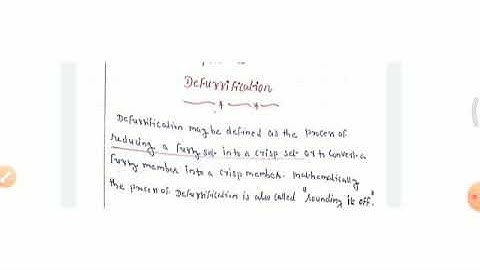 Defuzzification
Defuzzification may be defined as the process of
reducing a fuzzy set into a crisp set or to convert a
fuzzy member into a crisp member. Mathematically
the process of Defuzzification is also called "rounding it off".